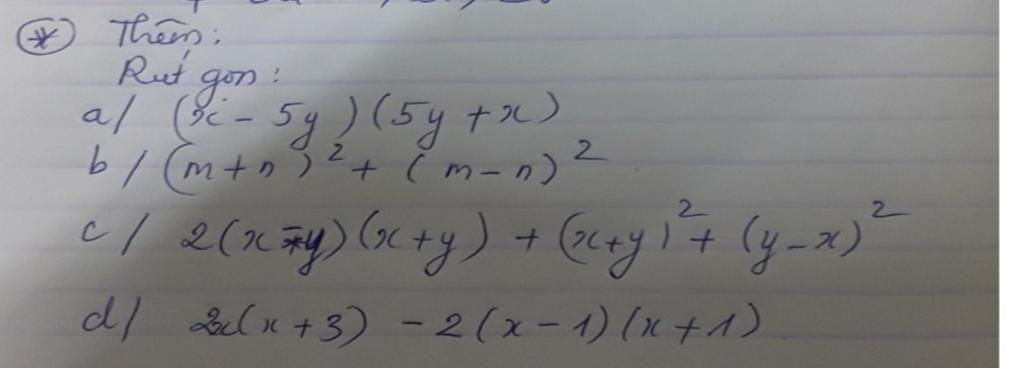 * Thêm:
Rút gọn:
a/ (x - 5y)(5y + x)
b/ (m + n)² + (m - n)²
c/ 2(x - y)(x + y) + (x + y)² + (y - x)²
d/ 2x(x + 3) - 2(x - 1)(x + 1)